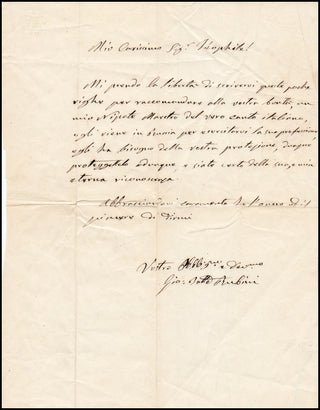 Mio Carissimo Sig.r Théophile!
Mi prendo la libertà di scrivervi queste poche
righe per raccomandare alla vostra bontà, un
mio Nipote Maestro del vero canto italiano,
egli viene in Francia per esercitarvi la sua professione
egli ha bisogno della vostra protezione, dunque
proteggetelo adunque e siate certo della mia
eterna riconoscenza.
Abbracciandovi caramente ho l'onore ed il
piacere di dirmi
Vostro Obb.mo e Devmo
Gio: Batta Rubini